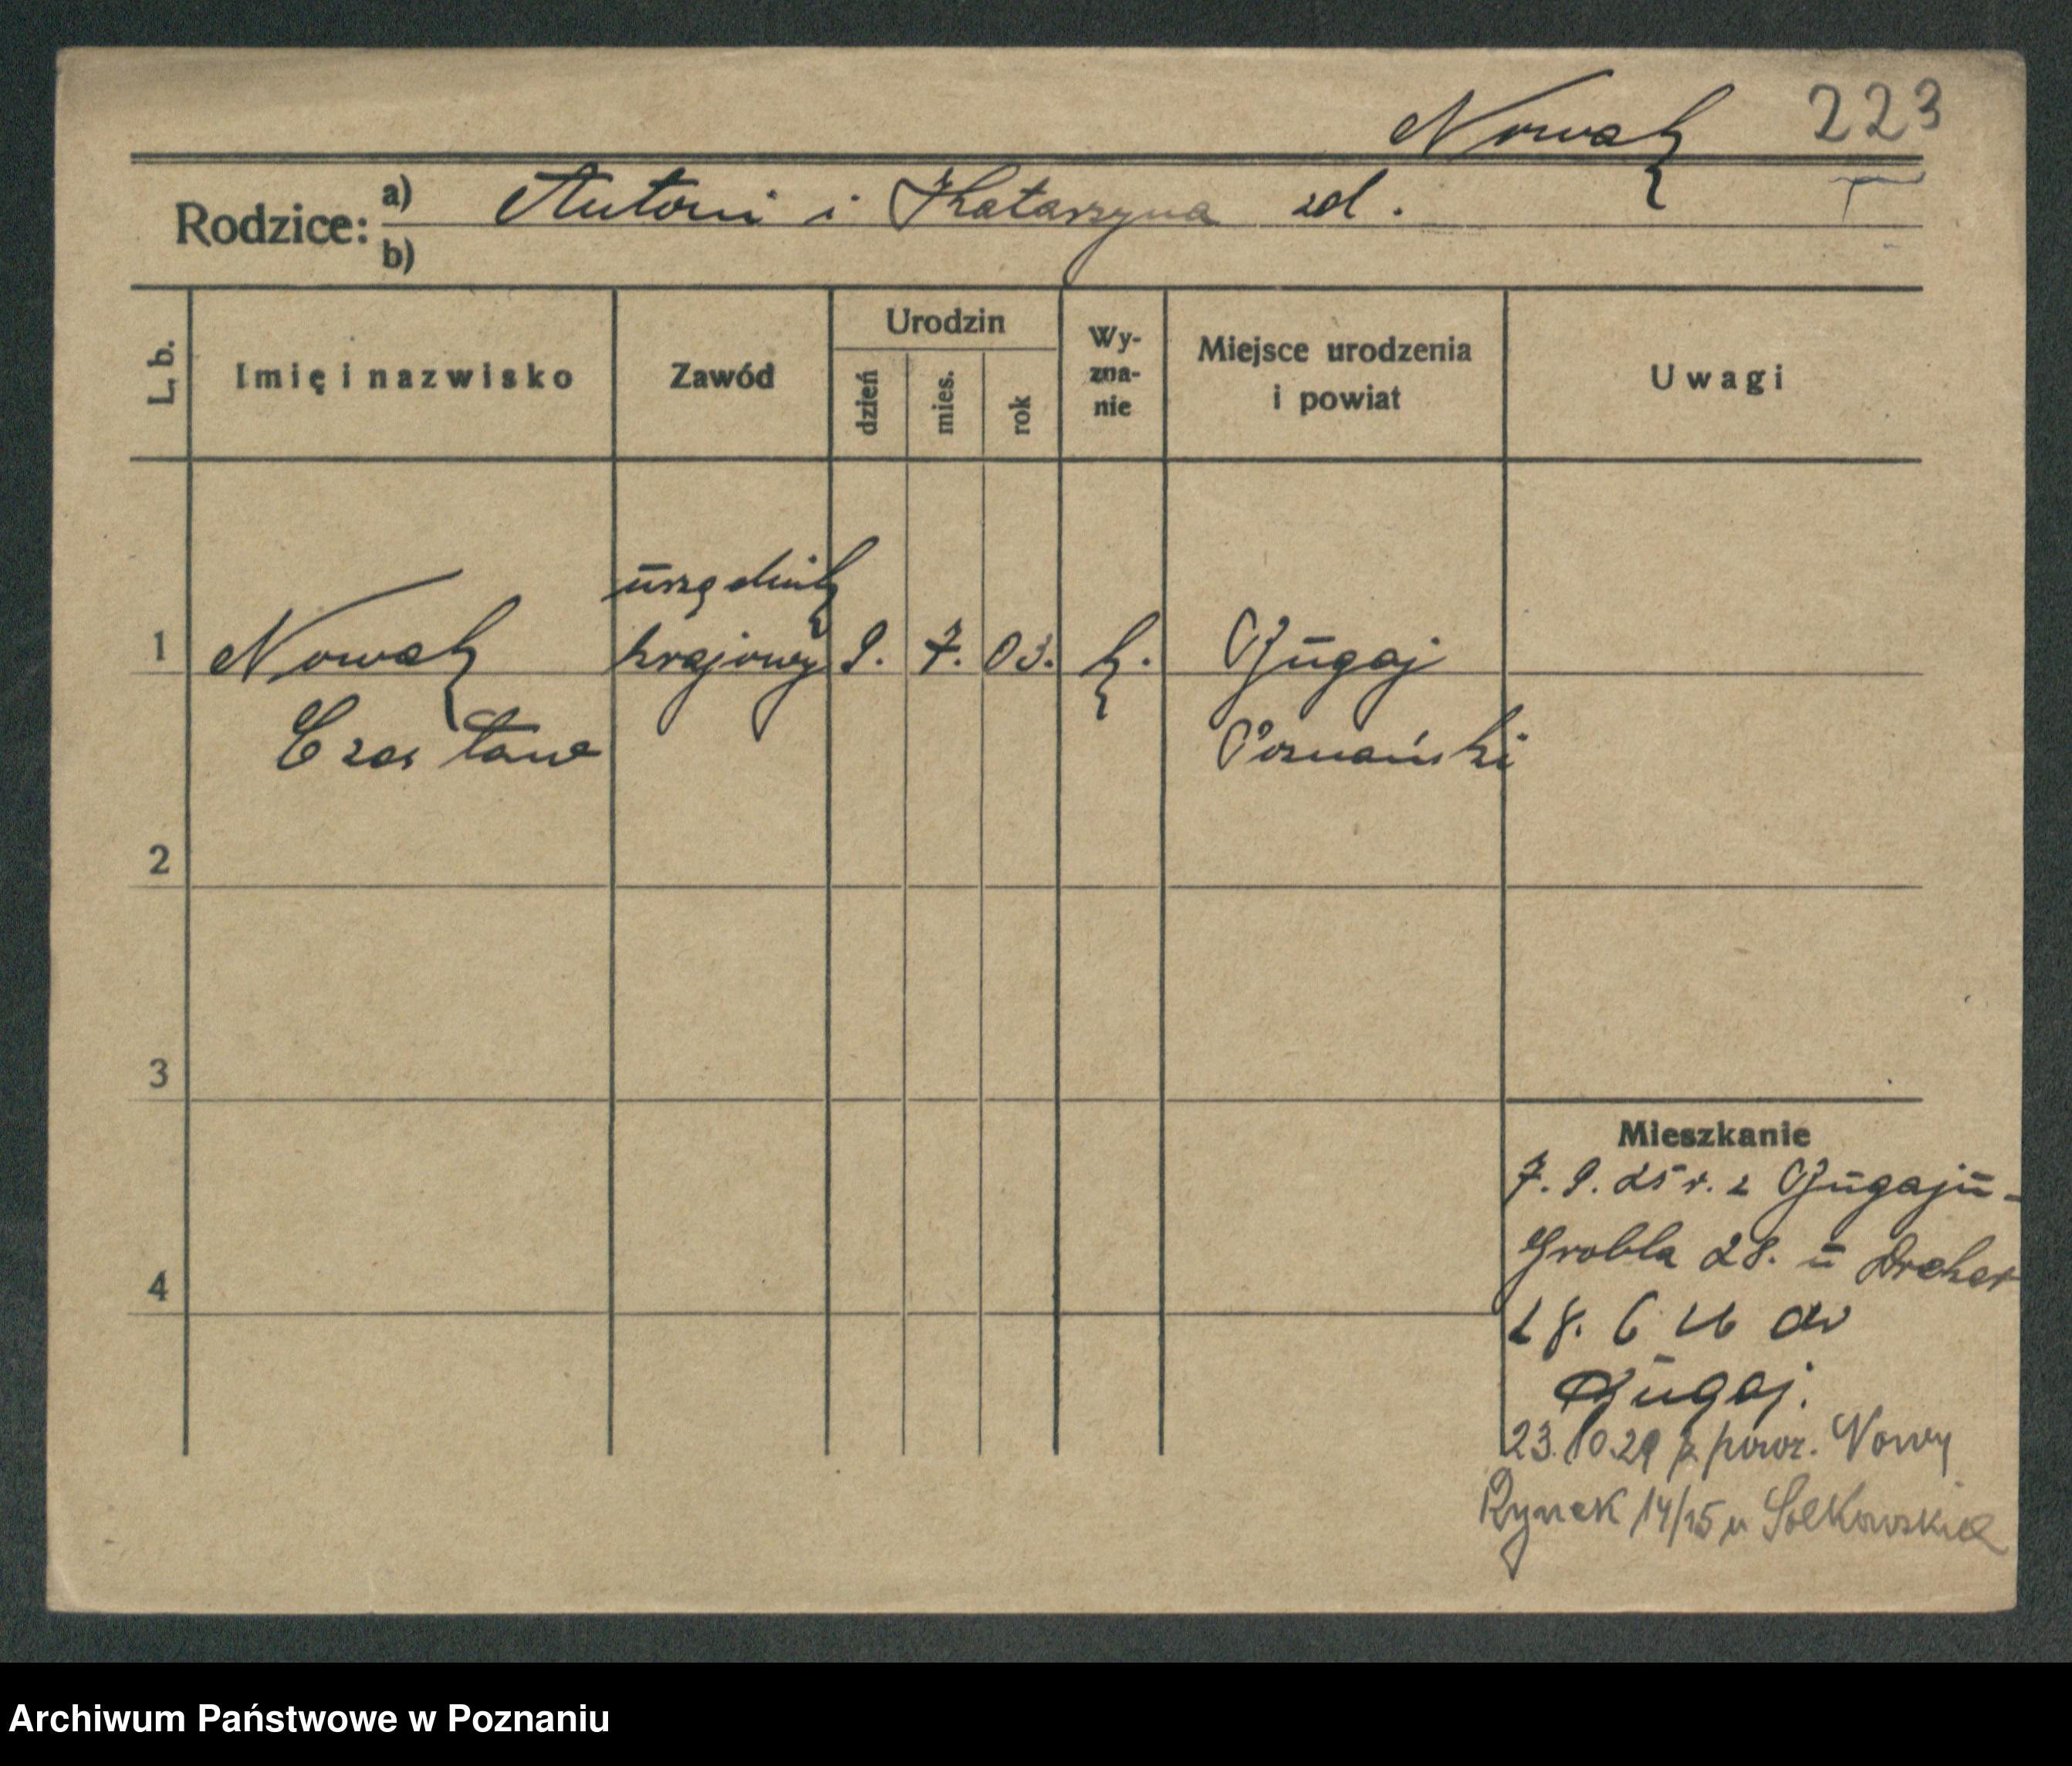 Nowak 223
Rodzice: a) Antoni i Katarzyna zd.
b)
L. b.
Imię i nazwisko
Zawód
Urodzin
dzień
mies.
rok
Wy-
zna-
nie
Miejsce urodzenia
i powiat
Uwagi
urzędnik
1 Nowak krajowy 9. 7. 03. k. Gługaj
Czesława Poznański
2
3
4
Mieszkanie
7. 9. 25 r. z
Grobla 28. u Dreher
28. 6 26 do
23.10.29 z powr. Nowy
Rynek 14/15 u
Archiwum Państwowe w Poznaniu